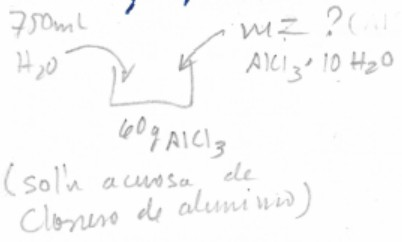 750ml
H2O
m = ?
AlCl3 · 10 H2O
60g AlCl3
(sol'n acuosa de
Cloruro de aluminio)